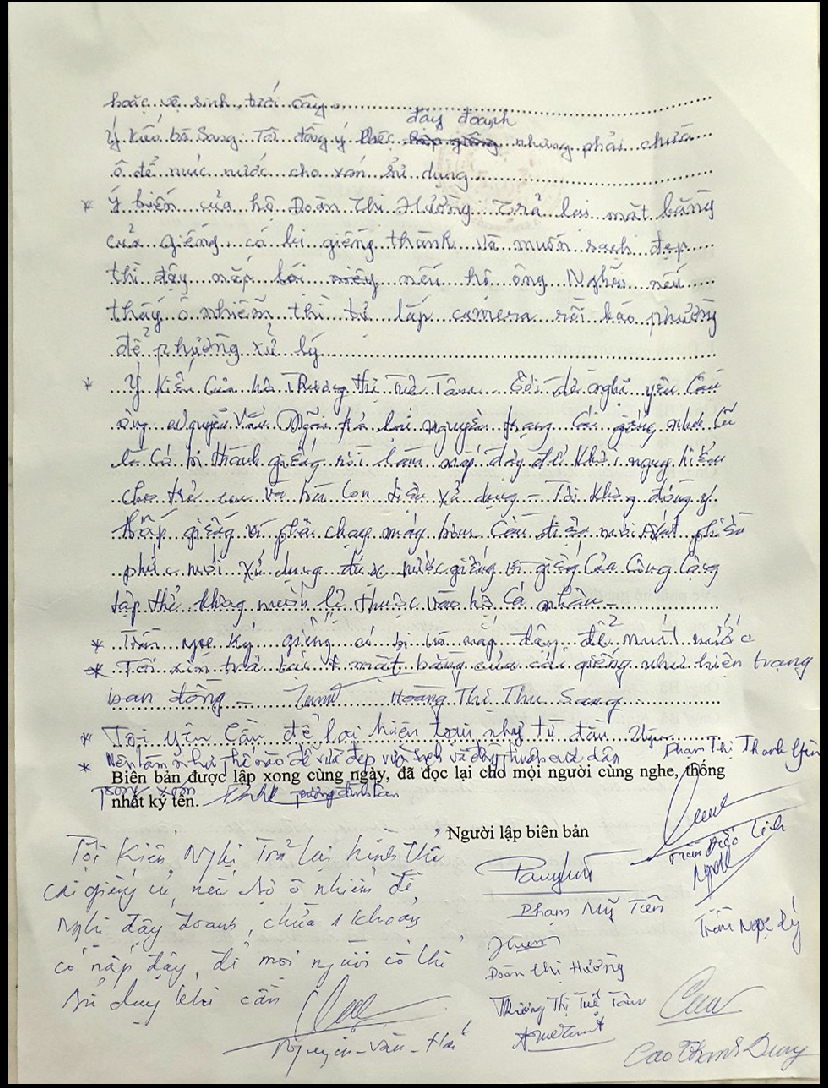 hoặc vệ sinh, tưới cây
đậy doanh
Ý kiến bà Sang: Tôi đồng ý nhưng phải chừa
ô để múc nước cho xóm sử dụng
* Ý kiến của hộ Đoàn Thị Hường Trả lại mặt bằng
của giếng có bi giếng thành và muốn sạch đẹp
thì đậy nắp nếu hộ ông Nghĩa nếu
thấy ô nhiễm thì tự lắp camera rồi báo phường
để phường xử lý
* Ý kiến của bà Trương Thị Tuế Tâm - Tôi đề nghị yêu cầu
ông Nguyễn Văn trả lại nguyên trạng cái giếng như cũ
là có bi thành giếng rồi làm nắp đậy để khỏi nguy hiểm
cho trẻ em và bà con tiện xử dụng - Tôi không đồng ý
lấp giếng vì phải chạy máy bơm cần điện mới phiền
phức mới xử dụng được nước giếng vì giếng của công cộng
tập thể không muốn lệ thuộc vào hộ cá nhân -
* Trần Ngọc Ký giếng có bi có nắp đậy để múc nước
* Tôi xin trả lại vì mặt bằng của cái giếng như hiện trạng
ban đồng - Hoàng Thị Thu Sang
* Tôi yêu cầu để lại hiện trạng như từ đầu
Phạm Thị Thanh Yên
* Nên làm như thế nào để vừa đẹp vừa sạch và dân
Biên bản được lập xong cùng ngày, đã đọc lại cho mọi người cùng nghe, thống
nhất ký tên.
Người lập biên bản
Tôi Kiến Nghị Trả lại hình thể
cái giếng cũ, nếu sợ ô nhiễm đề
nghị đậy doanh, chừa 1 khoảng
có nắp đậy, để mọi người có thể
sử dụng khi cần
Phạm Mỹ Tiên
Trần Ngọc Ký
Đoàn Thị Hường
Trương Thị Tuế Tâm
Nguyễn - Văn -
Cao Thanh Dung